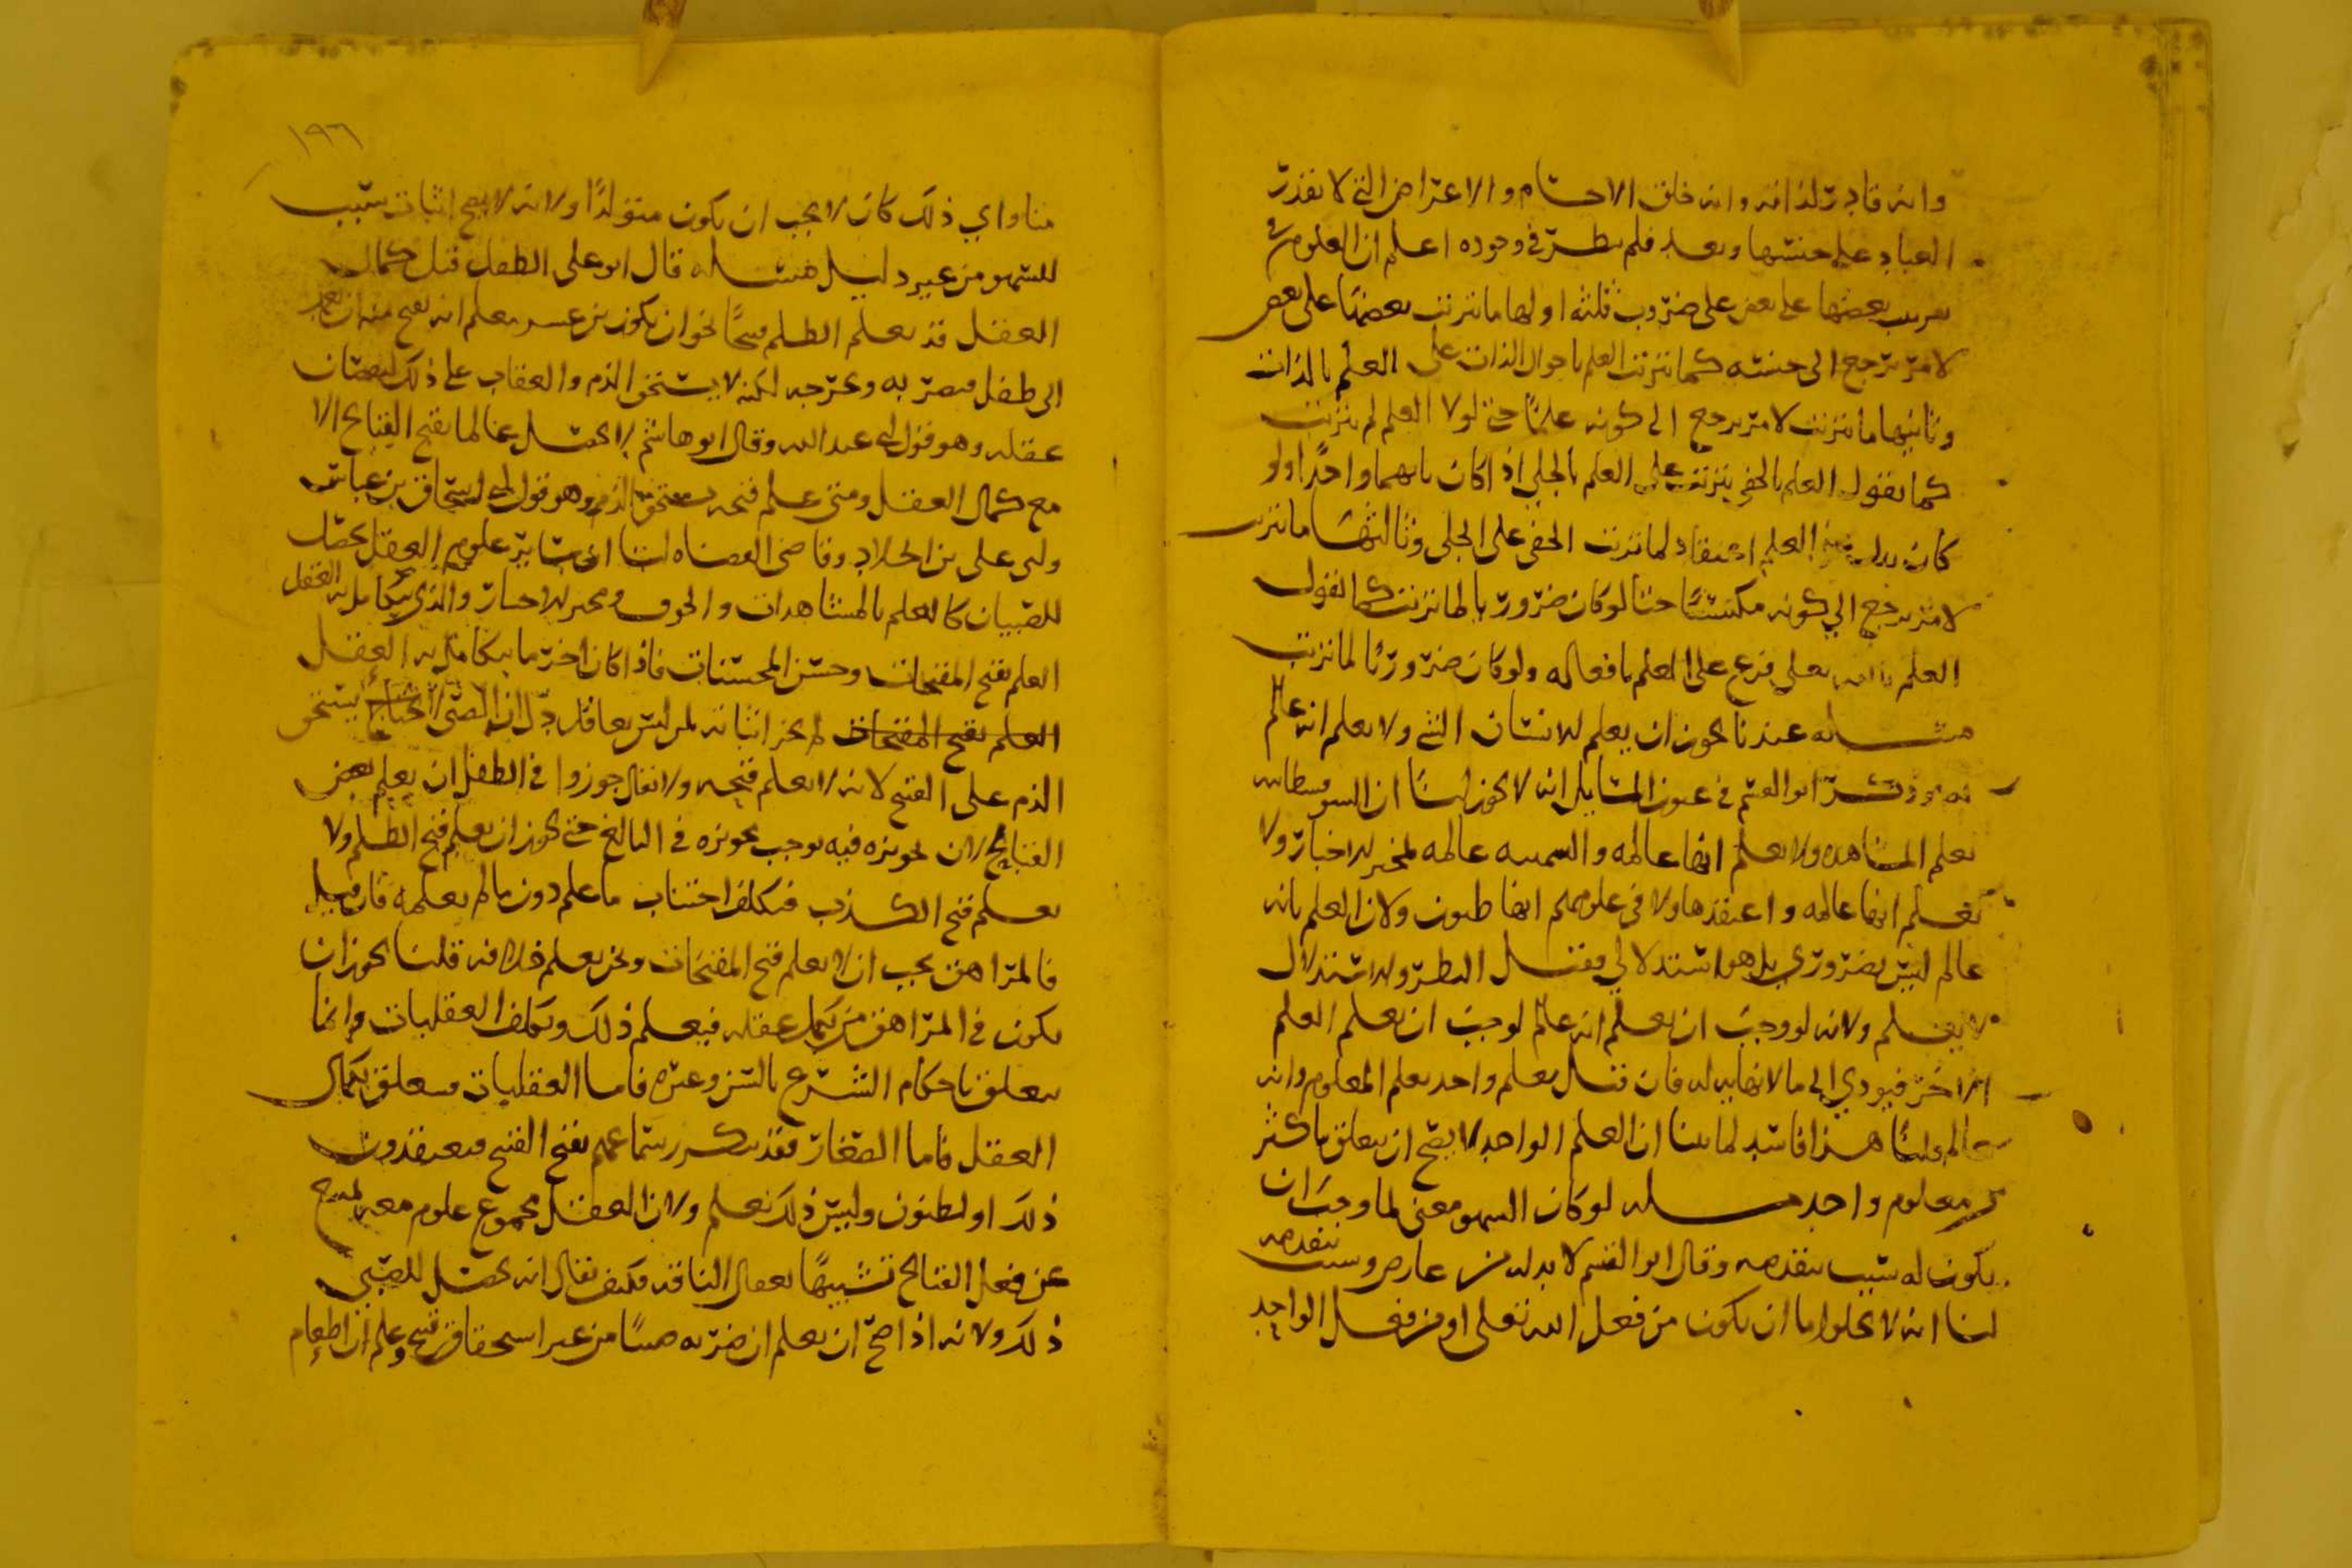 وانه قادر لذاته وانه خلق الاجسام والاعراض التي لا تقدر
العباد على جنسها وبعد فلم ينظر في وجوده اعلم ان العلوم
يترتب بعضها على بعض على ضروب ثلثة اولها ما يترتب بعضها على بعض
لامر يرجع الى جنسه كما يترتب العلم باحوال الذات على العلم بالذات
وثانيها ما يترتب لامر يرجع الى كونه علما حتى لولا العلم لم يترتب
كما نقول العلم بالخفي يترتب على العلم بالجلي اذا كان بابهما واحدا ولو
كان بدل العلم اعتقاد لما ترتب الخفي على الجلي وثالثها ما يترتب
لامر يرجع الى كونه مكتسبا حتى لو كان ضروريا لما ترتب كما نقول
العلم بالله تعلى فرع على العلم بافعاله ولو كان ضروريا لما ترتب
مسله عندنا يجوز ان يعلم الانسان الشي ولا يعلم انه عالم
به وذكر ابو القسم في عيون المسايل انه لا يجوز لنا ان السوفسطائيه
تعلم المشاهده ولا تعلم انها عالمه والسمنيه عالمه بمخبر الاخبار ولا
تعلم انها عالمه واعتقدها ولا في علومهم انها ظنون ولان العلم بانه
عالم ليس بضروري بل هو استدلالي وقد ينظر والاستدلال
لا يعلم ولانه لو وجب ان يعلم انه عالم لوجب ان يعلم العلم
اخر فيودي الى ما لا نهايه له فان قيل يعلم واحد يعلم المعلوم وانه
عالم قلنا هذا فاسد لما بينا ان العلم الواحد لا يصح ان يتعلق باكثر
من معلوم واحد مسله لو كان السهو معنى لما وجب ان
يكون له سبب يتقدمه وقال ابو القسم لا بد له من عارض وسبب يتقدمه
لنا انه لا يخلو اما ان يكون من فعل الله تعلى او من فعل الواحد
١٩٦
منا واي ذلك كان لا يجب ان يكون متولدا ولانه لا يصح اثبات سبب
للسهو من غير دليل مسله قال ابو علي الطفل قبل كمال
العقل قد يعلم الظلم قبيحا نحو ان يكون ابن عشر يعلم انه يقبح منه ان
الى طفل فيضربه ويخرجه لكنه لا يستحق الذم والعقاب على ذلك لنقصان
عقله وهو قول ابي عبد الله وقال ابو هاشم لا يحصل عالما بقبح القبائح الا
مع كمال العقل ومتى علم قبحه يستحق الذم وهو قول ابي اسحاق بن عياش
وابي علي بن الخلاد وقاضي القضاه لنا ان سائر علوم العقل يحصل
للصبيان كالعلم بالمشاهدات والخوف ومخبر الاخبار والذي يتكامل به العقل
العلم بقبح المقبحات وحسن المحسنات فاذا كان اخر ما يتكامل به العقل
العلم بقبح المقبحات لم يجز اثباته لمن ليس بعاقل يدل ان الصبي لا يستحق
الذم على القبح لانه لا يعلم قبحه ولا يقال جوزوا في الطفل ان يعلم بعض
القبائح لان تجويزه فيه يوجب تجويزه في البالغ حتى يجوز ان يعلم قبح الظلم ولا
يعلم قبح الكذب فيكلف اجتناب ما علم دون ما لم يعلمه فان قيل
فالمراهق يجب ان لا يعلم قبح المقبحات ونحن نعلم خلافه قلنا يجوز ان
يكون في المراهق من يكمل عقله فيعلم ذلك ويكلف العقليات وانما
يتعلق باحكام الشرع بالسن وغيره فاما العقليات فيتعلق بكمال
العقل فاما الصغار فقد يتكرر سماعهم بقبح القبح فيعتقدون
ذلك او يظنون وليس ذلك بعلم ولان العقل مجموع علوم معه يمنع
عن فعل القبائح تشبيها بعقال الناقه فكيف يقال انه يحصل للصبي
ذلك ولانه اذا صح ان يعلم ان ضربه من غير استحقاق قبح وعلم ان اطعام